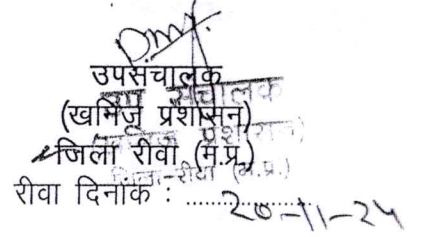 उपसंचालक
(खनिज प्रशासन)
जिला रीवा (म.प्र.)
रीवा दिनांक : .................. 20-11-24